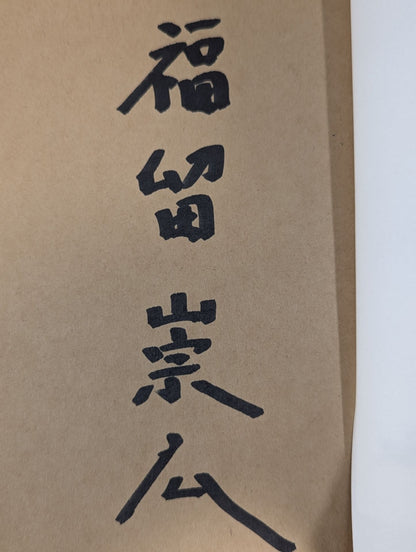 福留崇広